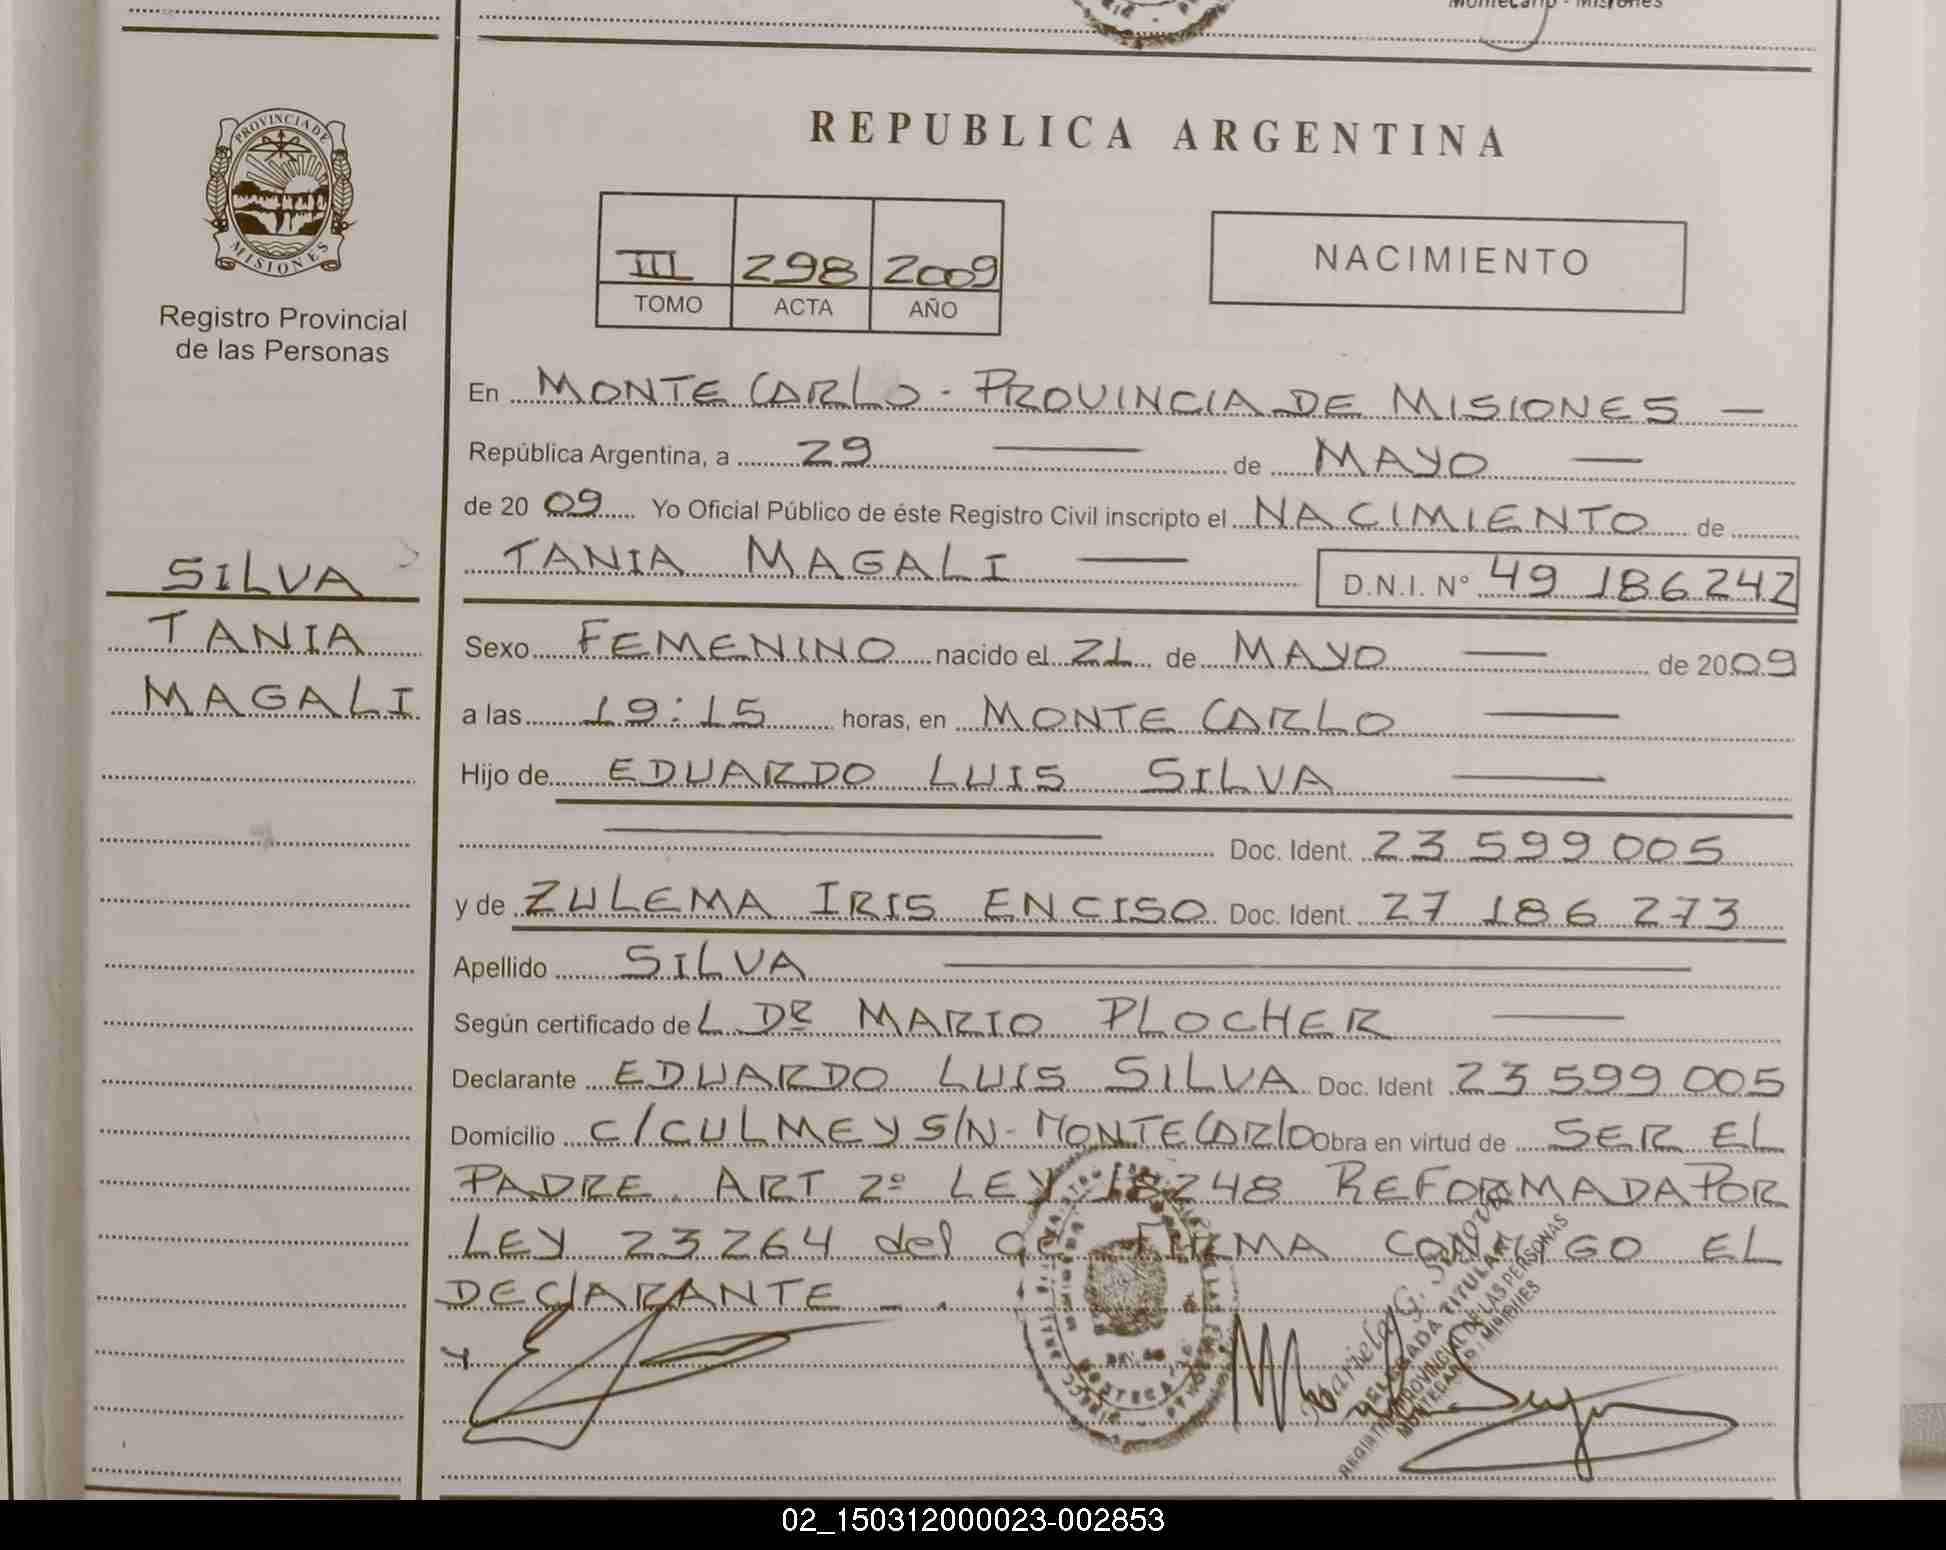 Montecarlo - Misiones
PROVINCIA DE
MISIONES
Registro Provincial
de las Personas
SILVA
TANIA
MAGALI
REPUBLICA ARGENTINA
III 298 2009
TOMO ACTA AÑO
NACIMIENTO
En MONTE CARLO - PROVINCIA DE MISIONES —
República Argentina, a 29 — de MAYO —
de 20 09 Yo Oficial Público de éste Registro Civil inscripto el NACIMIENTO de
TANIA MAGALI — D.N.I. N° 49 186242
Sexo FEMENINO nacido el 21 de MAYO — de 2009
a las 19:15 horas, en MONTE CARLO —
Hijo de EDUARDO LUIS SILVA —
— Doc. Ident. 23 599 005
y de ZULEMA IRIS ENCISO Doc. Ident. 27 186 273
Apellido SILVA —
Según certificado de L DR MARIO PLOCHER —
Declarante EDUARDO LUIS SILVA Doc. Ident 23 599 005
Domicilio C/CULMEY S/N - MONTECARLO Obra en virtud de SER EL
PADRE. ART 2º LEY 18248 REFORMADA POR
LEY 23264 del FIRMA CONMIGO EL
DECLARANTE - .
Mariela G.
DELEGADA TITULAR
REGISTRO PROVINCIAL DE LAS PERSONAS
MONTECARLO MISIONES
02_150312000023-002853